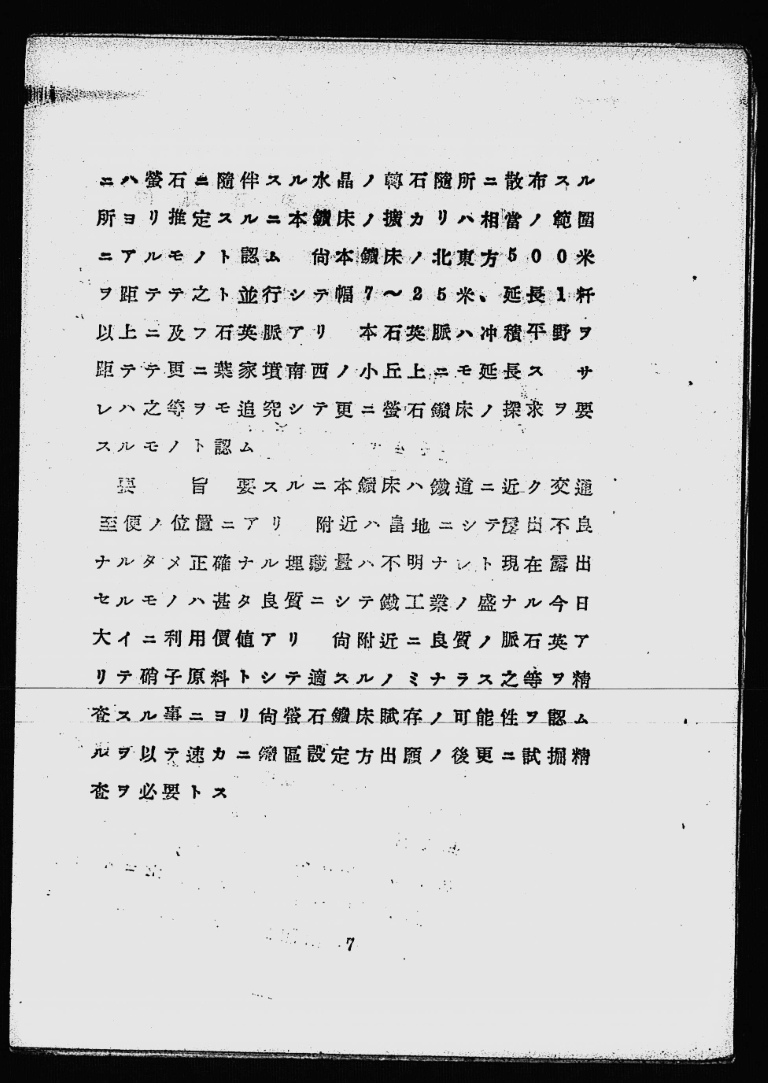 ニハ螢石ニ隨伴スル水晶ノ轉石隨所ニ散布スル
所ヨリ推定スルニ本鑛床ノ擴カリハ相當ノ範圍
ニアルモノト認ム　尙本鑛床ノ北東方500米
ヲ距テテ之ト並行シテ幅7～25米、延長1粁
以上ニ及フ石英脈アリ　本石英脈ハ冲積平野ヲ
距テテ更ニ葉家墳南西ノ小丘上ニモ延長ス　サ
レハ之等ヲモ追究シテ更ニ螢石鑛床ノ探求ヲ要
スルモノト認ム
要　旨　要スルニ本鑛床ハ鐵道ニ近ク交通
至便ノ位置ニアリ　附近ハ畠地ニシテ露出不良
ナルタメ正確ナル埋藏量ハ不明ナレト現在露出
セルモノハ甚タ良質ニシテ鐵工業ノ盛ナル今日
大イニ利用價値アリ　尙附近ニ良質ノ脈石英ア
リテ硝子原料トシテ適スルノミナラス之等ヲ精
査スル事ニヨリ尙螢石鑛床賦存ノ可能性ヲ認ム
ルヲ以テ速カニ鑛區設定方出願ノ後更ニ試掘精
査ヲ必要トス
7